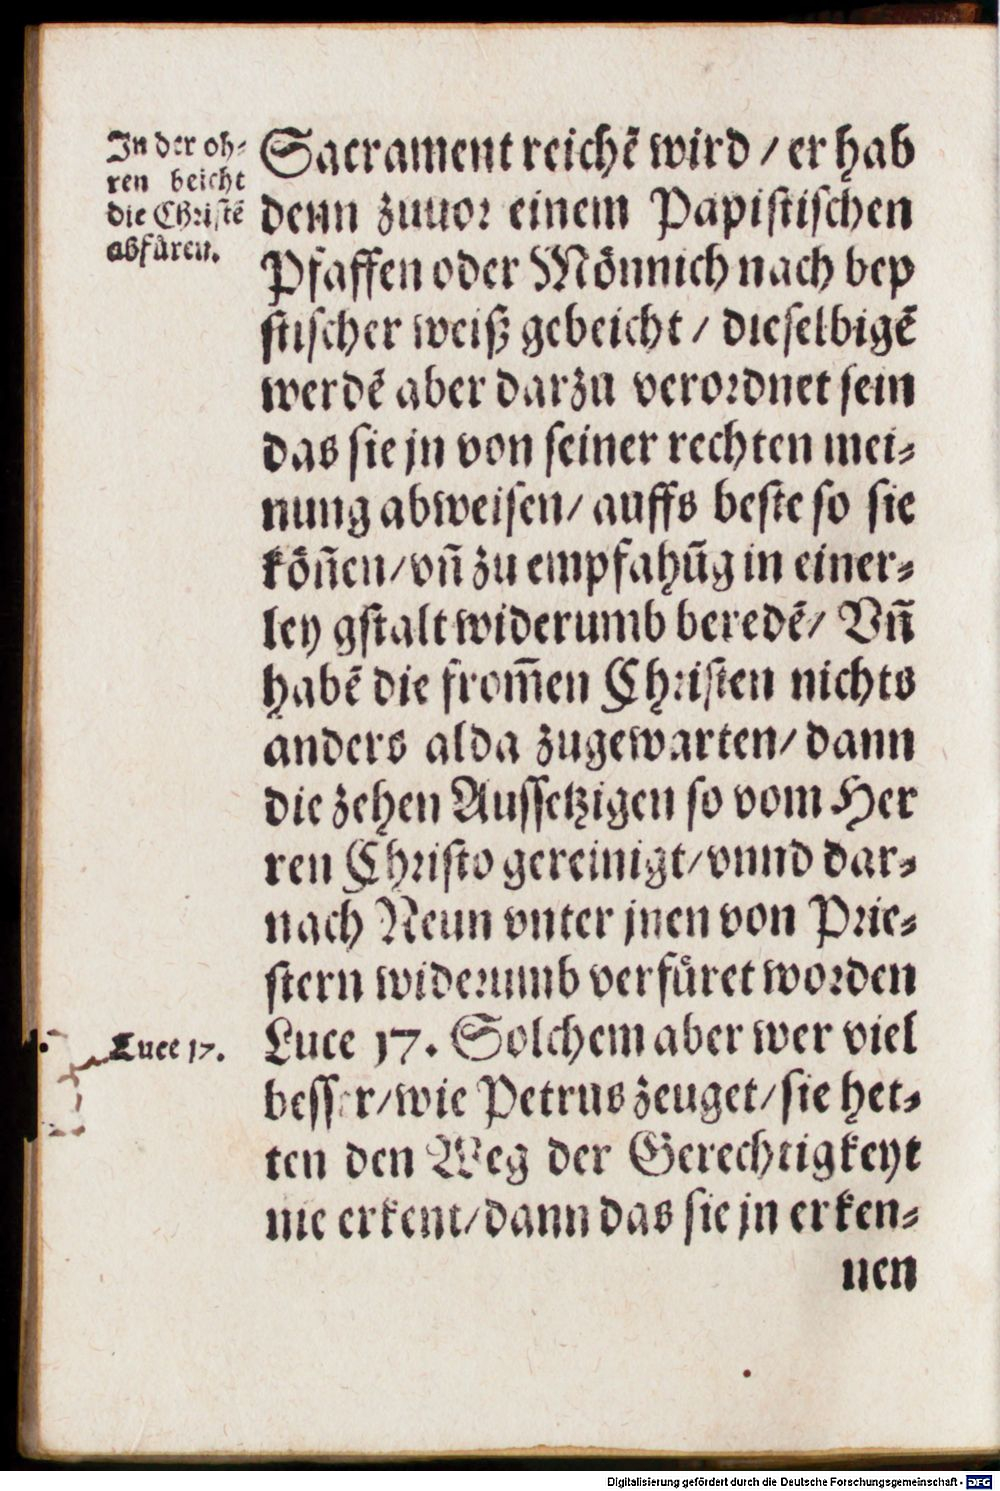 In der oh⸗
ren beicht
die Christẽ
abfüren.
Sacrament reichẽ wird / er hab
denn zuuor einem Papistischen
Pfaffen oder Mönnich nach bep
stischer weiß gebeicht / dieselbigẽ
werdẽ aber darzu verordnet sein
das sie jn von seiner rechten mei⸗
nung abweisen / auffs beste so sie
köñen / vñ zu empfahũg in einer⸗
ley gstalt widerumb beredẽ / Vñ
habẽ die from̃en Christen nichts
anders alda zugewarten / dann
die zehen Aussetzigen so vom Her
ren Christo gereinigt / vnnd dar⸗
nach Neun vnter jnen von Prie⸗
stern widerumb verfüret worden
Luce 17.
Luce 17. Solchem aber wer viel
besser / wie Petrus zeuget / sie het⸗
ten den Weg der Gerechtigkeyt
nie erkent / dann das sie jn erken⸗
nen
Digitalisierung gefördert durch die Deutsche Forschungsgemeinschaft - DFG